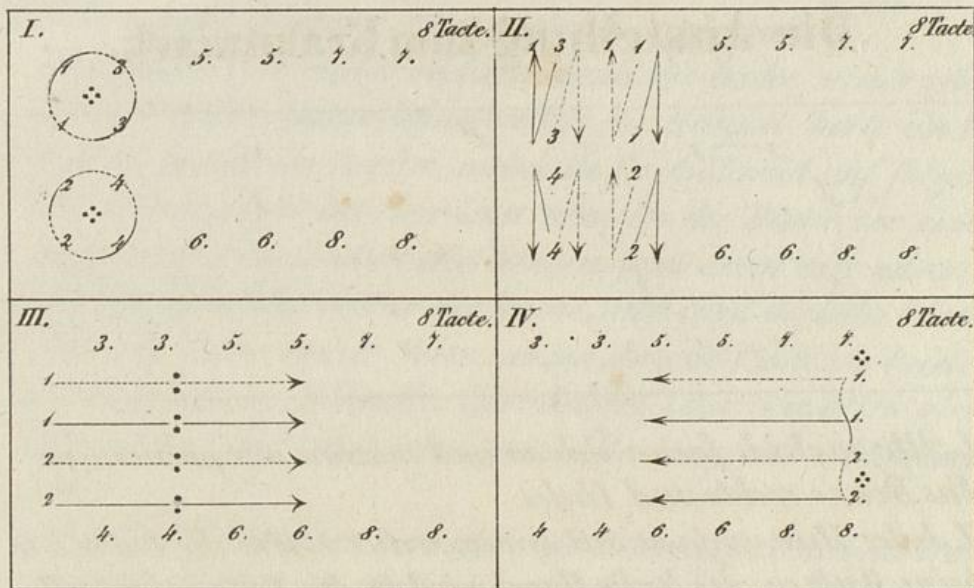 I. 8 Tacte.
5. 5. 7. 7.
1 3
1 3
2 4
2 4
6. 6. 8. 8.
II. 8 Tacte.
1 3 1 1 5. 5. 7. 7.
3 1
4 2
4 2
6. 6. 8. 8.
III. 8 Tacte.
3. 3. 5. 5. 7. 7.
1
1
2
2
4. 4. 6. 6. 8. 8.
IV. 8 Tacte.
3. 3. 5. 5. 7. 7.
1.
1.
2.
2.
4. 4. 6. 6. 8. 8.